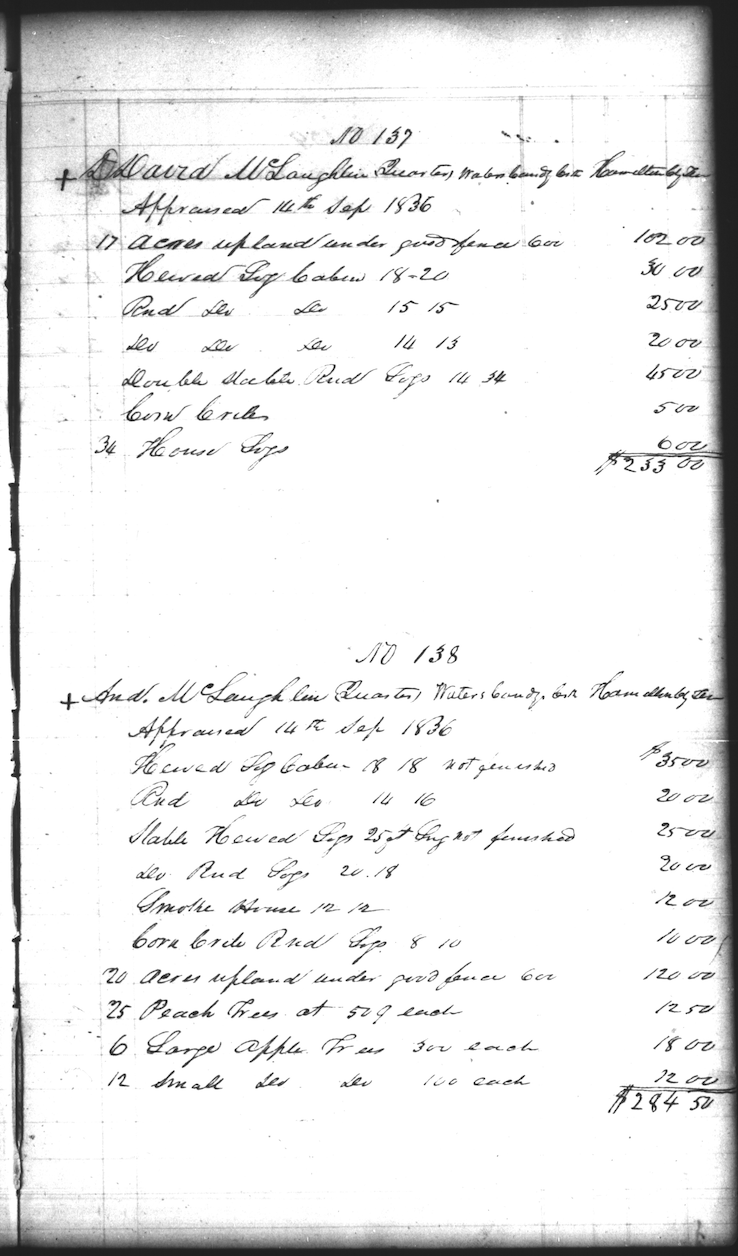 NO 137
+ David McLaughlin Quarter) Waters Candy Crk Hamilton Cty Ten
Appraised 14th Sep 1836
17 Acres upland under good fence 600 102 00
Hewed Log Cabin 18-20 30 00
Rnd Do Do 15 15 25 00
Do Do Do 14 13 20 00
Double Stable Rnd Logs 14 34 45 00
Corn Crib 5 00
34 House Logs 6 00
$233 00
NO 138
+ And. McLaughlin Quarter) Waters Candy. Crk Hamilton Cty Ten
Appraised 14th Sep 1836
Hewed Log Cabin 18 18 not finished $35 00
Rnd Do Do 14 16 20 00
Stable Hewed Logs 25 ft Lng not finished 25 00
Do Rnd Logs 20.18 20 00
Smoke House 12 12 12 00
Corn Crib Rnd Logs 8 10 10 00
20 Acres upland under good fence 600 120 00
25 Peach Trees at 50¢ each 12 50
6 Large Apple Trees 300 each 18 00
12 Small Do Do 100 each 12 00
$284 50